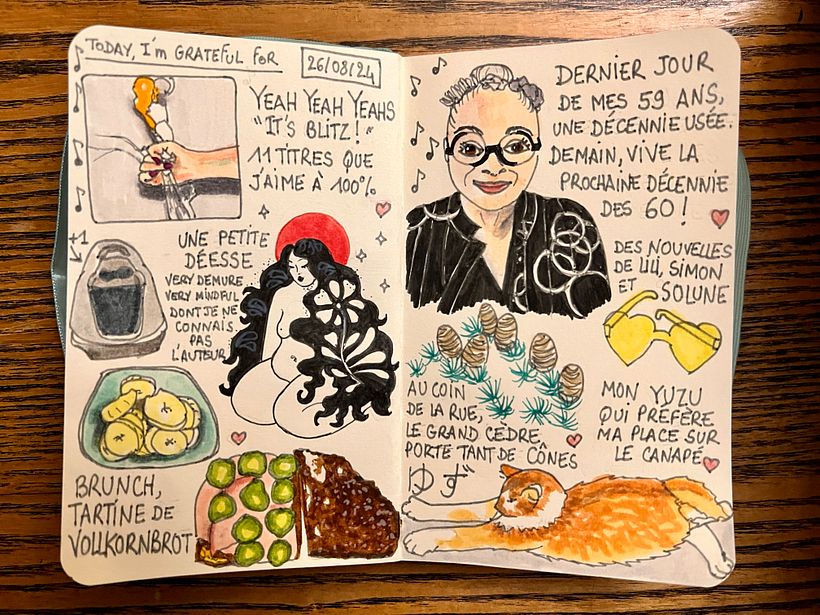 TODAY, I'm GRATEFUL FOR
26/08/24
YEAH YEAH YEAHS
"IT'S BLITZ!"
11 TITRES QUE
J'AIME À 100%
UNE PETITE
DÉESSE
VERY DEMURE
VERY MINDFUL
DONT JE NE
CONNAIS
PAS
L'AUTEUR
BRUNCH,
TARTINE DE
VOLLKORNBROT
DERNIER JOUR
DE MES 59 ANS,
UNE DÉCENNIE USÉE.
DEMAIN, VIVE LA
PROCHAINE DÉCENNIE
DES 60!
DES NOUVELLES
DE LILI, SIMON
ET SOLUNE
AU COIN
DE LA RUE,
LE GRAND CÈDRE
PORTE TANT DE CÔNES
MON YUZU
QUI PRÉFÈRE
MA PLACE SUR
LE CANAPÉ
ゆず